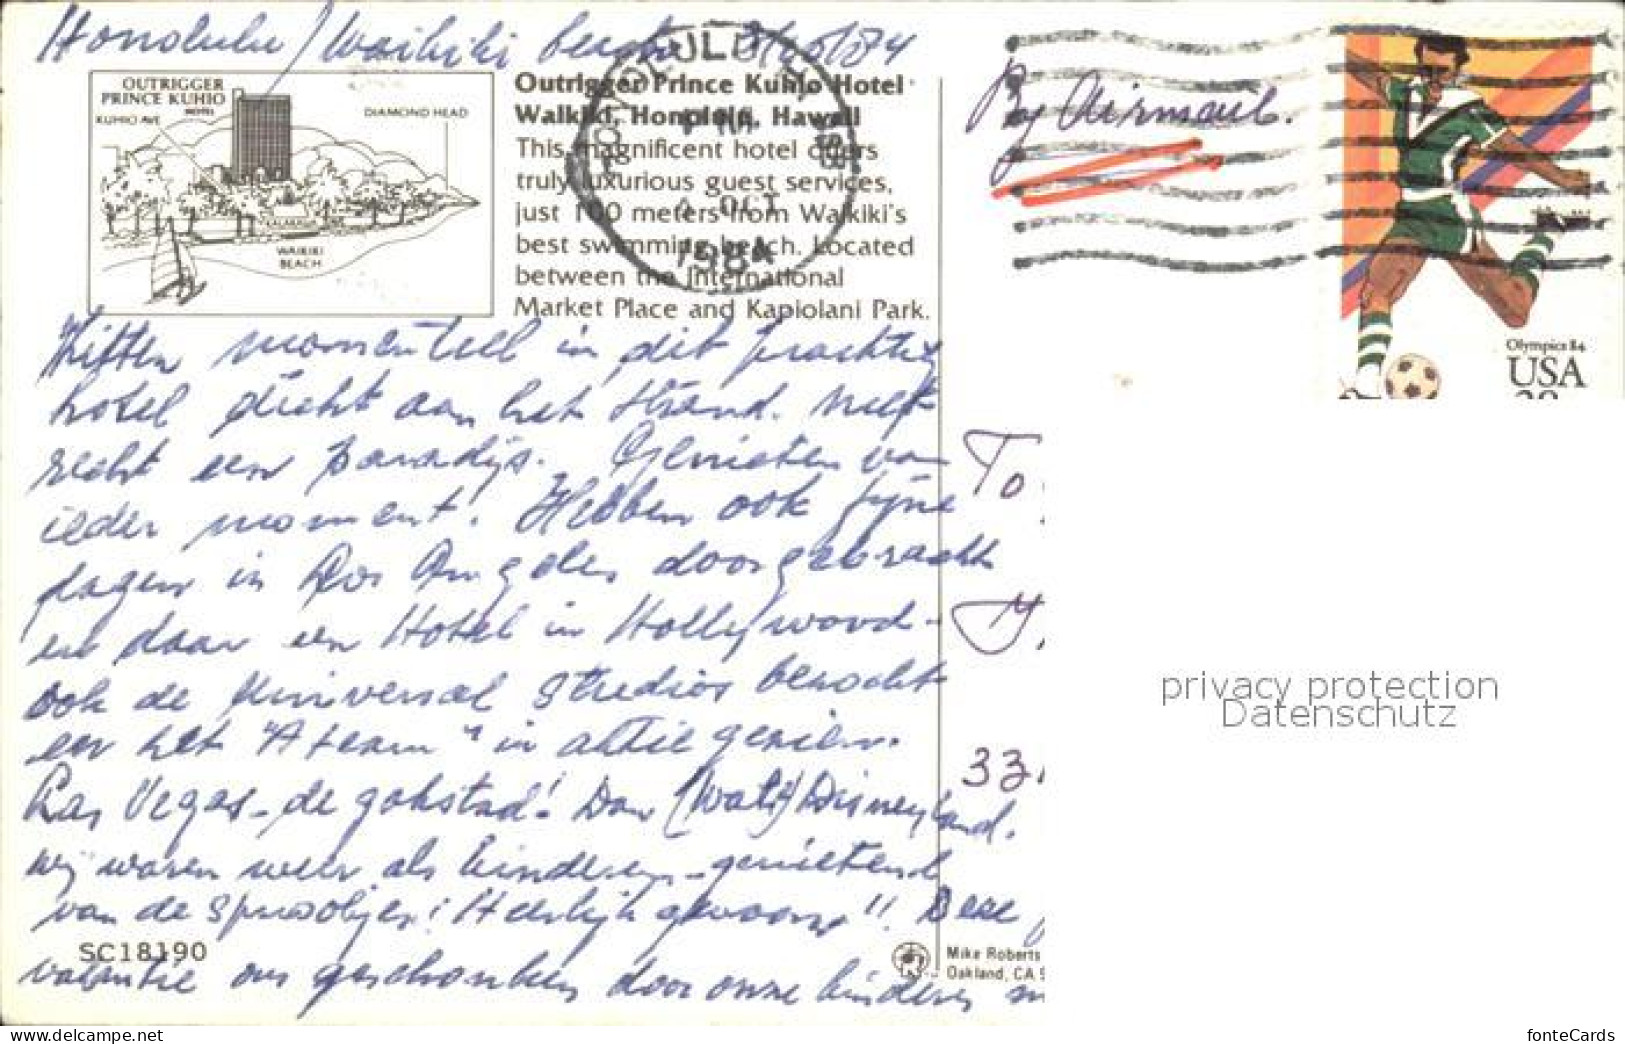 Honolulu / Waikiki beach 84
OUTRIGGER
PRINCE KUHIO
HOTEL
KUHIO AVE
DIAMOND HEAD
KALAKAUA
WAIKIKI
BEACH
Outrigger Prince Kuhio Hotel
Waikiki, Honolulu, Hawaii
This magnificent hotel offers
truly luxurious guest services,
just 100 meters from Waikiki's
best swimming beach. Located
between the International
Market Place and Kapiolani Park.
HONOLULU
PM
OCT
1984
By Airmail.
Olympics 84
USA
Zitten momenteel in dit prachtig
hotel dicht aan het strand.
echt een paradijs. Genieten van
ieder moment! Hebben ook fijne
dagen in Los Angeles doorgebracht
en daar een Hotel in Hollywood -
ook de Universal Studios bezocht
en het "A team" in aktie gezien.
Las Vegas - de gokstad! Dan (Walt) Disneyland.
wij waren weer als kinderen - genietend
van de sprookjes! Heerlijk gewoon!! Deze
vakantie ons geschonken door onze kinderen
To
33
SC18190
Mike Roberts
Oakland, CA 9
privacy protection
Datenschutz
fonteCards
www.delcampe.net